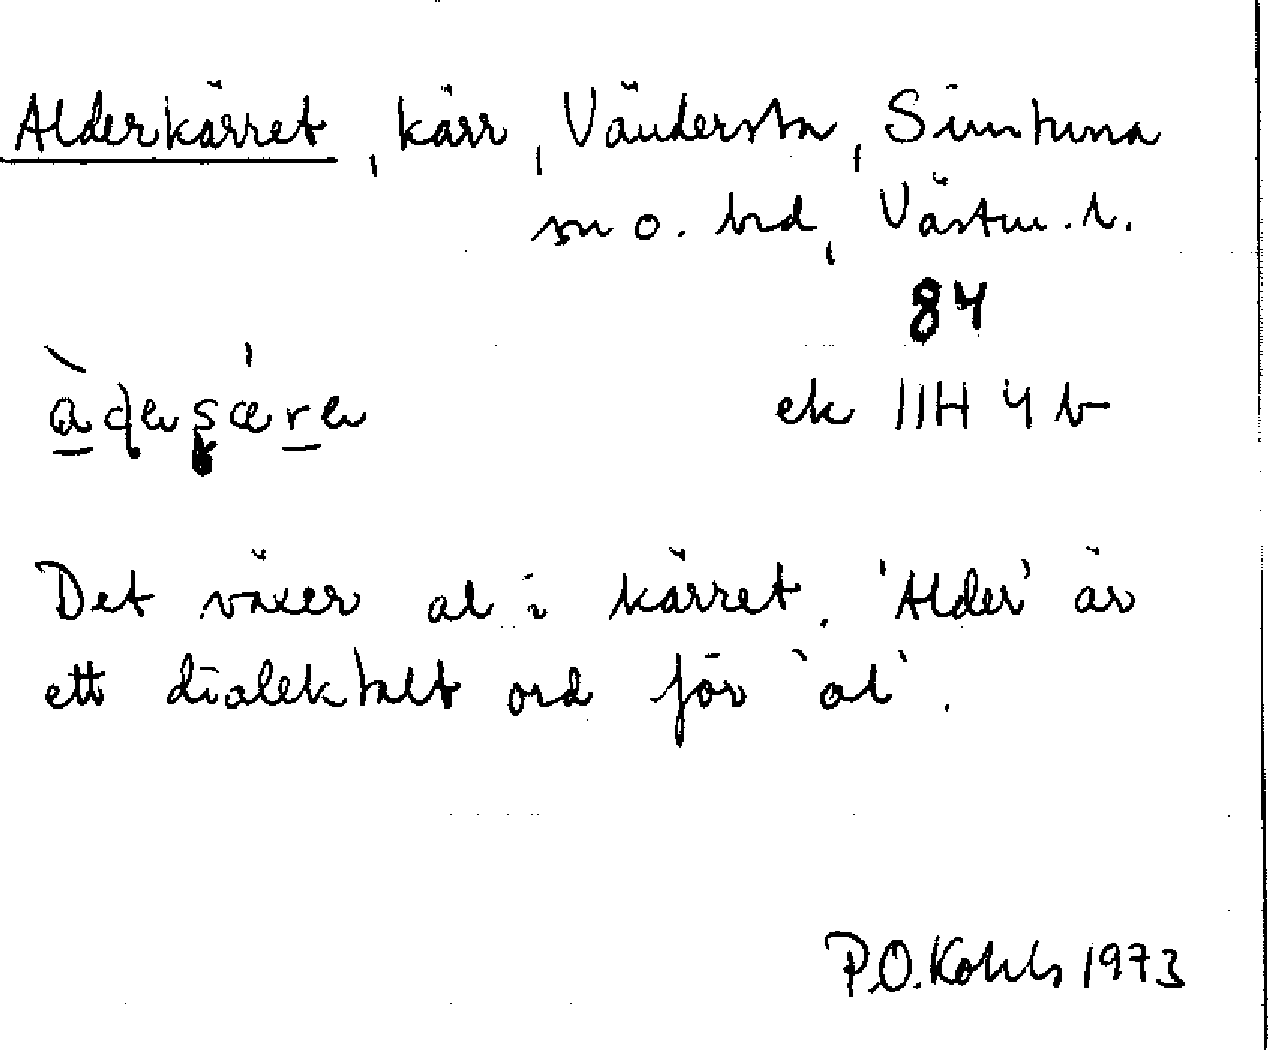 Alderkärret, kärr, Vändersta, Simtuna
sn o. hd, Västm. l.
84
ek 11H 4 b
Det växer al i kärret. 'Alder' är
ett dialektalt ord för 'al'.
P.O. Kohls 1973